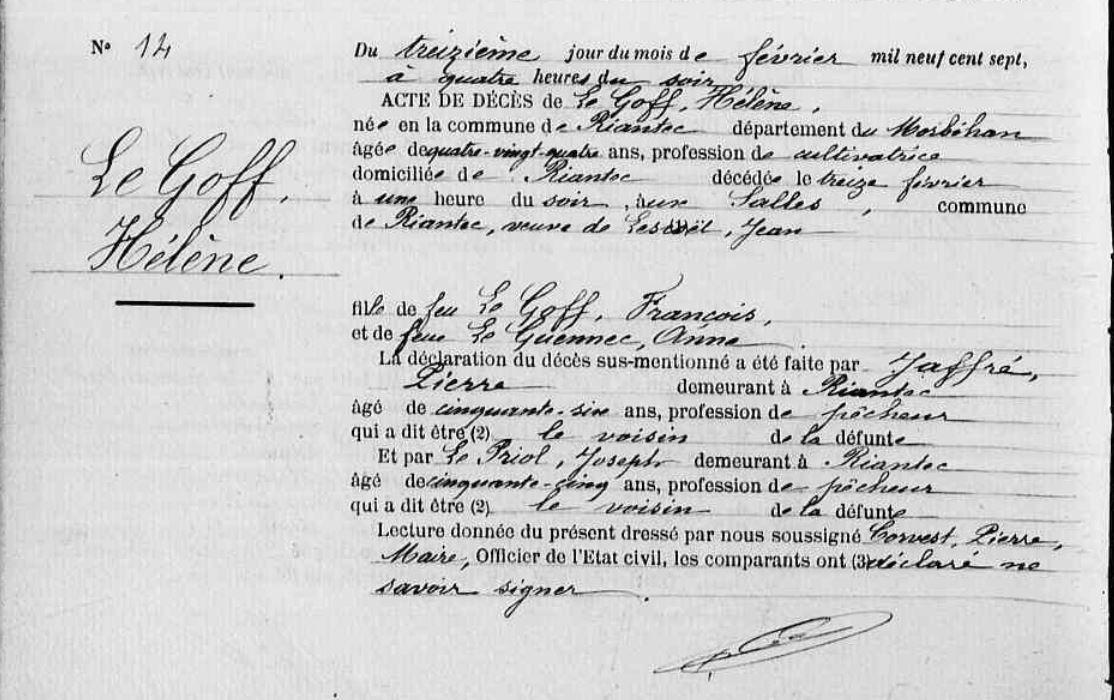 N° 14
Le Goff,
Hélène.
Du treizième jour du mois de février mil neuf cent sept,
à quatre heures du soir
ACTE DE DÉCÈS de Le Goff, Hélène,
née en la commune de Riantec département du Morbihan
âgée de quatre-vingt-quatre ans, profession de cultivatrice
domiciliée de Riantec décédée le treize février
à une heure du soir, aux Salles, commune
de Riantec, veuve de Jean
fille de feu Le Goff, François,
et de feue Le Guennec, Anne
La déclaration du décès sus-mentionné a été faite par Jaffré,
Pierre demeurant à Riantec
âgé de cinquante-six ans, profession de pêcheur
qui a dit être (2) le voisin de la défunte
Et par Le Priol, Joseph demeurant à Riantec
âgé de cinquante-cinq ans, profession de pêcheur
qui a dit être (2) le voisin de la défunte
Lecture donnée du présent dressé par nous soussigné Corvest, Pierre,
Maire, Officier de l'Etat civil, les comparants ont (3) déclaré ne
savoir signer.